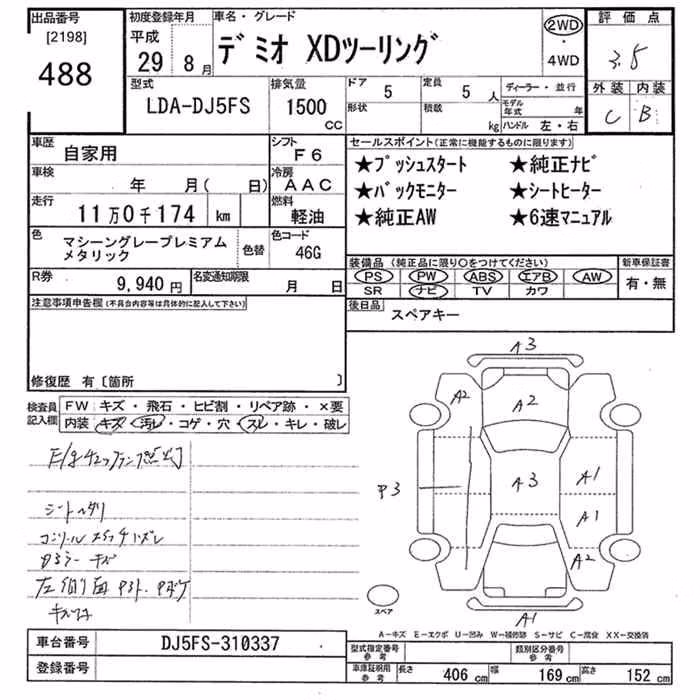 出品番号
[2198]
488
初度登録年月
平成
29年 8月
車名・グレード
デミオ XDツーリング
2WD
・
4WD
評価点
3.5
外装 内装
C B
型式
LDA-DJ5FS
排気量
1500
CC
ドア 5
形状
定員 5 人
積載 kg
ディーラー・並行
モデル年式 年
ハンドル 左・右
車歴
自家用
シフト
F6
車検
年 月( 日)
冷房
AAC
走行
11万0千174 km
燃料
軽油
色
マシーングレープレミアム
メタリック
色替
色コード
46G
R券
9,940円
名変通知期限
月 日
セールスポイント(正常に機能するものに限ります)
★プッシュスタート ★純正ナビ
★バックモニター ★シートヒーター
★純正AW ★6速マニュアル
装備品 (純正品に限り○をつけてください)
PS PW ABS エアB AW
SR ナビ TV カワ
新車保証書
有・無
後日品
スペアキー
注意事項申告欄(不具合内容等は具体的に記入して下さい)
修復歴 有〔箇所 〕
検査員
記入欄
FW キズ・飛石・ヒビ割・リペア跡・×要
内装 キズ・汚レ・コゲ・穴・スレ・キレ・破レ
シートヘタリ
キズ
A3
A2
A2
A3
A1
A1
A2
A1
スペア
A-キズ E-エクボ U-凹み W-補修跡 S-サビ C-腐食 XX-交換済
車台番号
DJ5FS-310337
登録番号
型式指定番号
参考
類別区分番号
参考
車庫証明用
参考
長さ 406 cm 幅 169 cm 高さ 152 cm